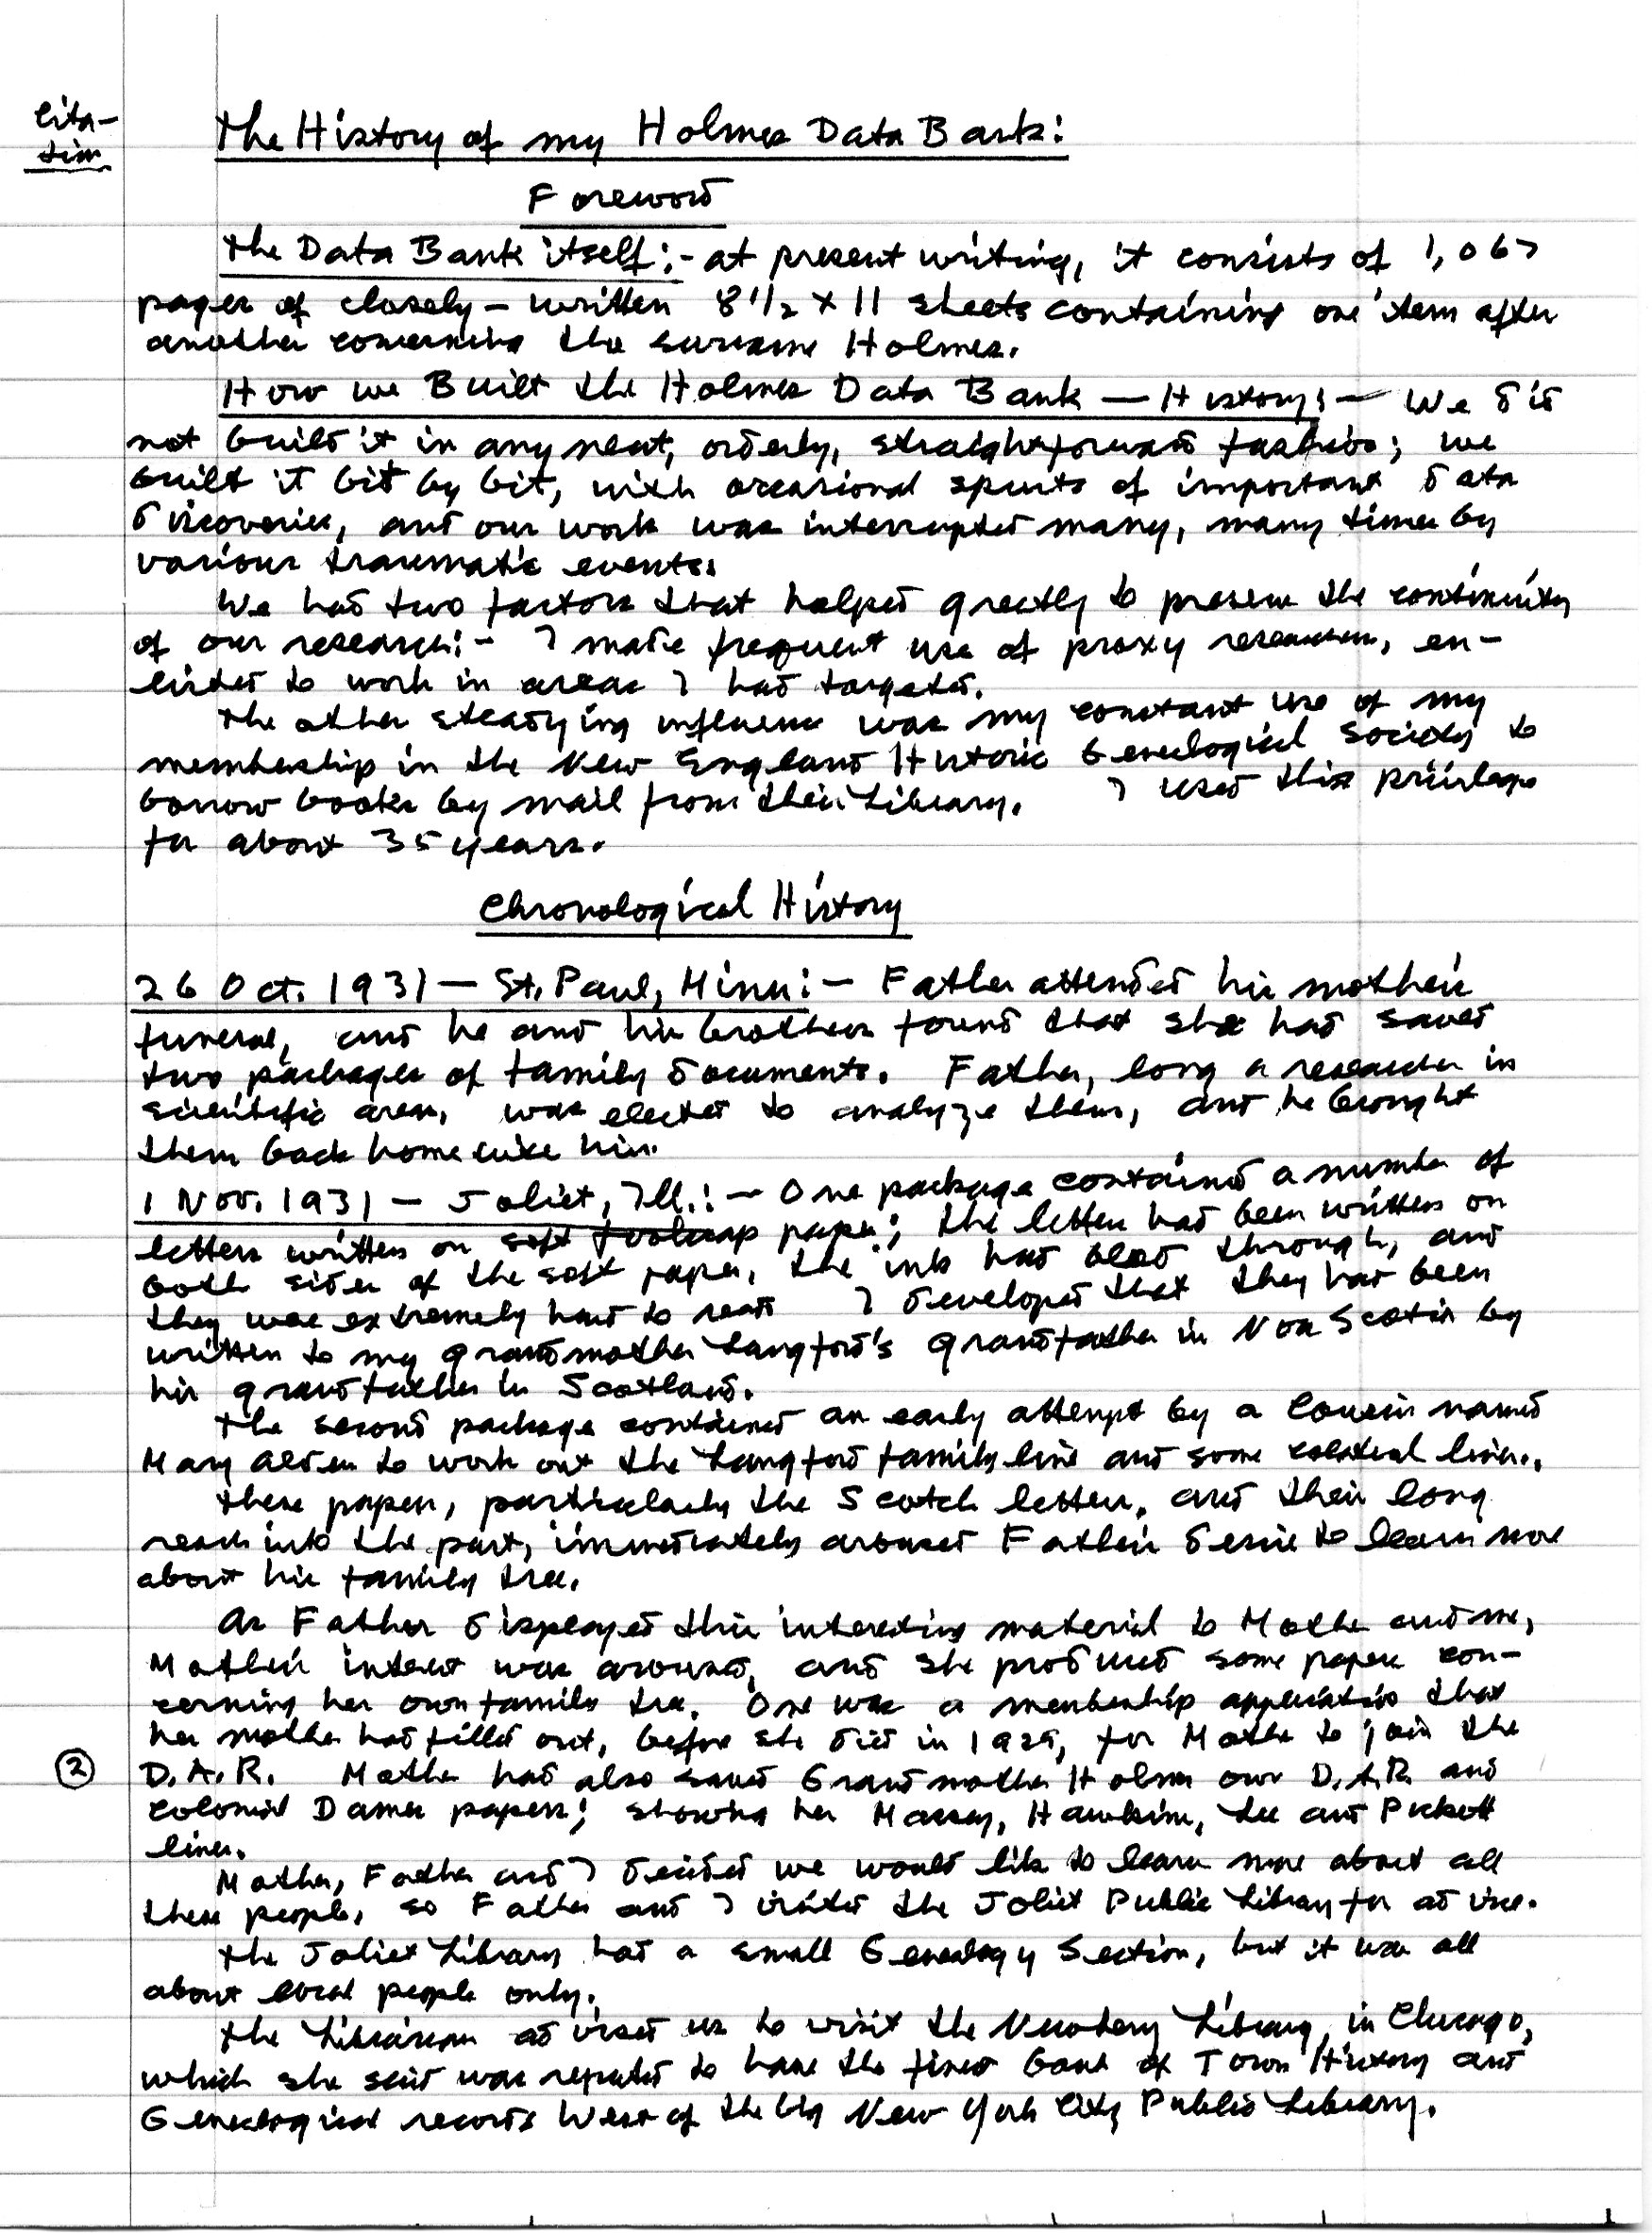 Cita-
tion
The History of my Holmes Data Bank:
Foreword
The Data Bank itself:- at present writing, it consists of 1,067
pages of closely-written 8 1/2 x 11 sheets containing one item after
another concerning the surname Holmes.
How we Built the Holmes Data Bank — History:— We did
not build it in any neat, orderly, straightforward fashion; we
built it bit by bit, with occasional spurts of important data
discoveries, and our work was interrupted many, many times by
various traumatic events.
We had two factors that helped greatly to preserve the continuity
of our research:- I made frequent use of proxy researchers, en-
listed to work in areas I had targeted.
The other steadying influence was my constant use of my
membership in the New England Historic Genealogical Society to
borrow books by mail from their Library. I used this privilege
for about 35 years.
Chronological History
26 Oct. 1931 — St. Paul, Minn:— Father attended his mother's
funeral, and he and his brothers found that she had saved
two packages of family documents. Father, long a researcher in
scientific areas, was elected to analyze them, and he brought
them back home with him.
1 Nov. 1931 — Joliet, Ill.:— One package contained a number of
letters written on soft foolscap paper; the letters had been written on
both sides of the soft paper, the ink had bled through, and
they were extremely hard to read. I developed that they had been
written to my grandmother Langford's grandfather in Nova Scotia by
his grandfather in Scotland.
The second package contained an early attempt by a cousin named
Mary Alden to work out the Langford family line and some colateral lines.
These papers, particularly the Scotch letters, and their long
reach into the past, immediately aroused Father's desire to learn more
about his family tree.
As Father displayed this interesting material to Mother and me,
Mother's interest was aroused, and she produced some papers con-
cerning her own family tree. One was a membership application that
her mother had filled out, before she died in 1929, for Mother to join the
② D.A.R. Mother had also saved Grandmother Holmes own D.A.R. and
Colonial Dames papers; showing her Massey, Hawkins, Lee and Pickett
lines.
Mother, Father and I decided we would like to learn more about all
these people, so Father and I visited the Joliet Public Library for advice.
The Joliet Library had a small Genealogy Section, but it was all
about local people only.
The Librarian advised us to visit the Newberry Library, in Chicago,
which she said was reputed to have the finest bank of Town History and
Genealogical records West of the big New York City Public Library.